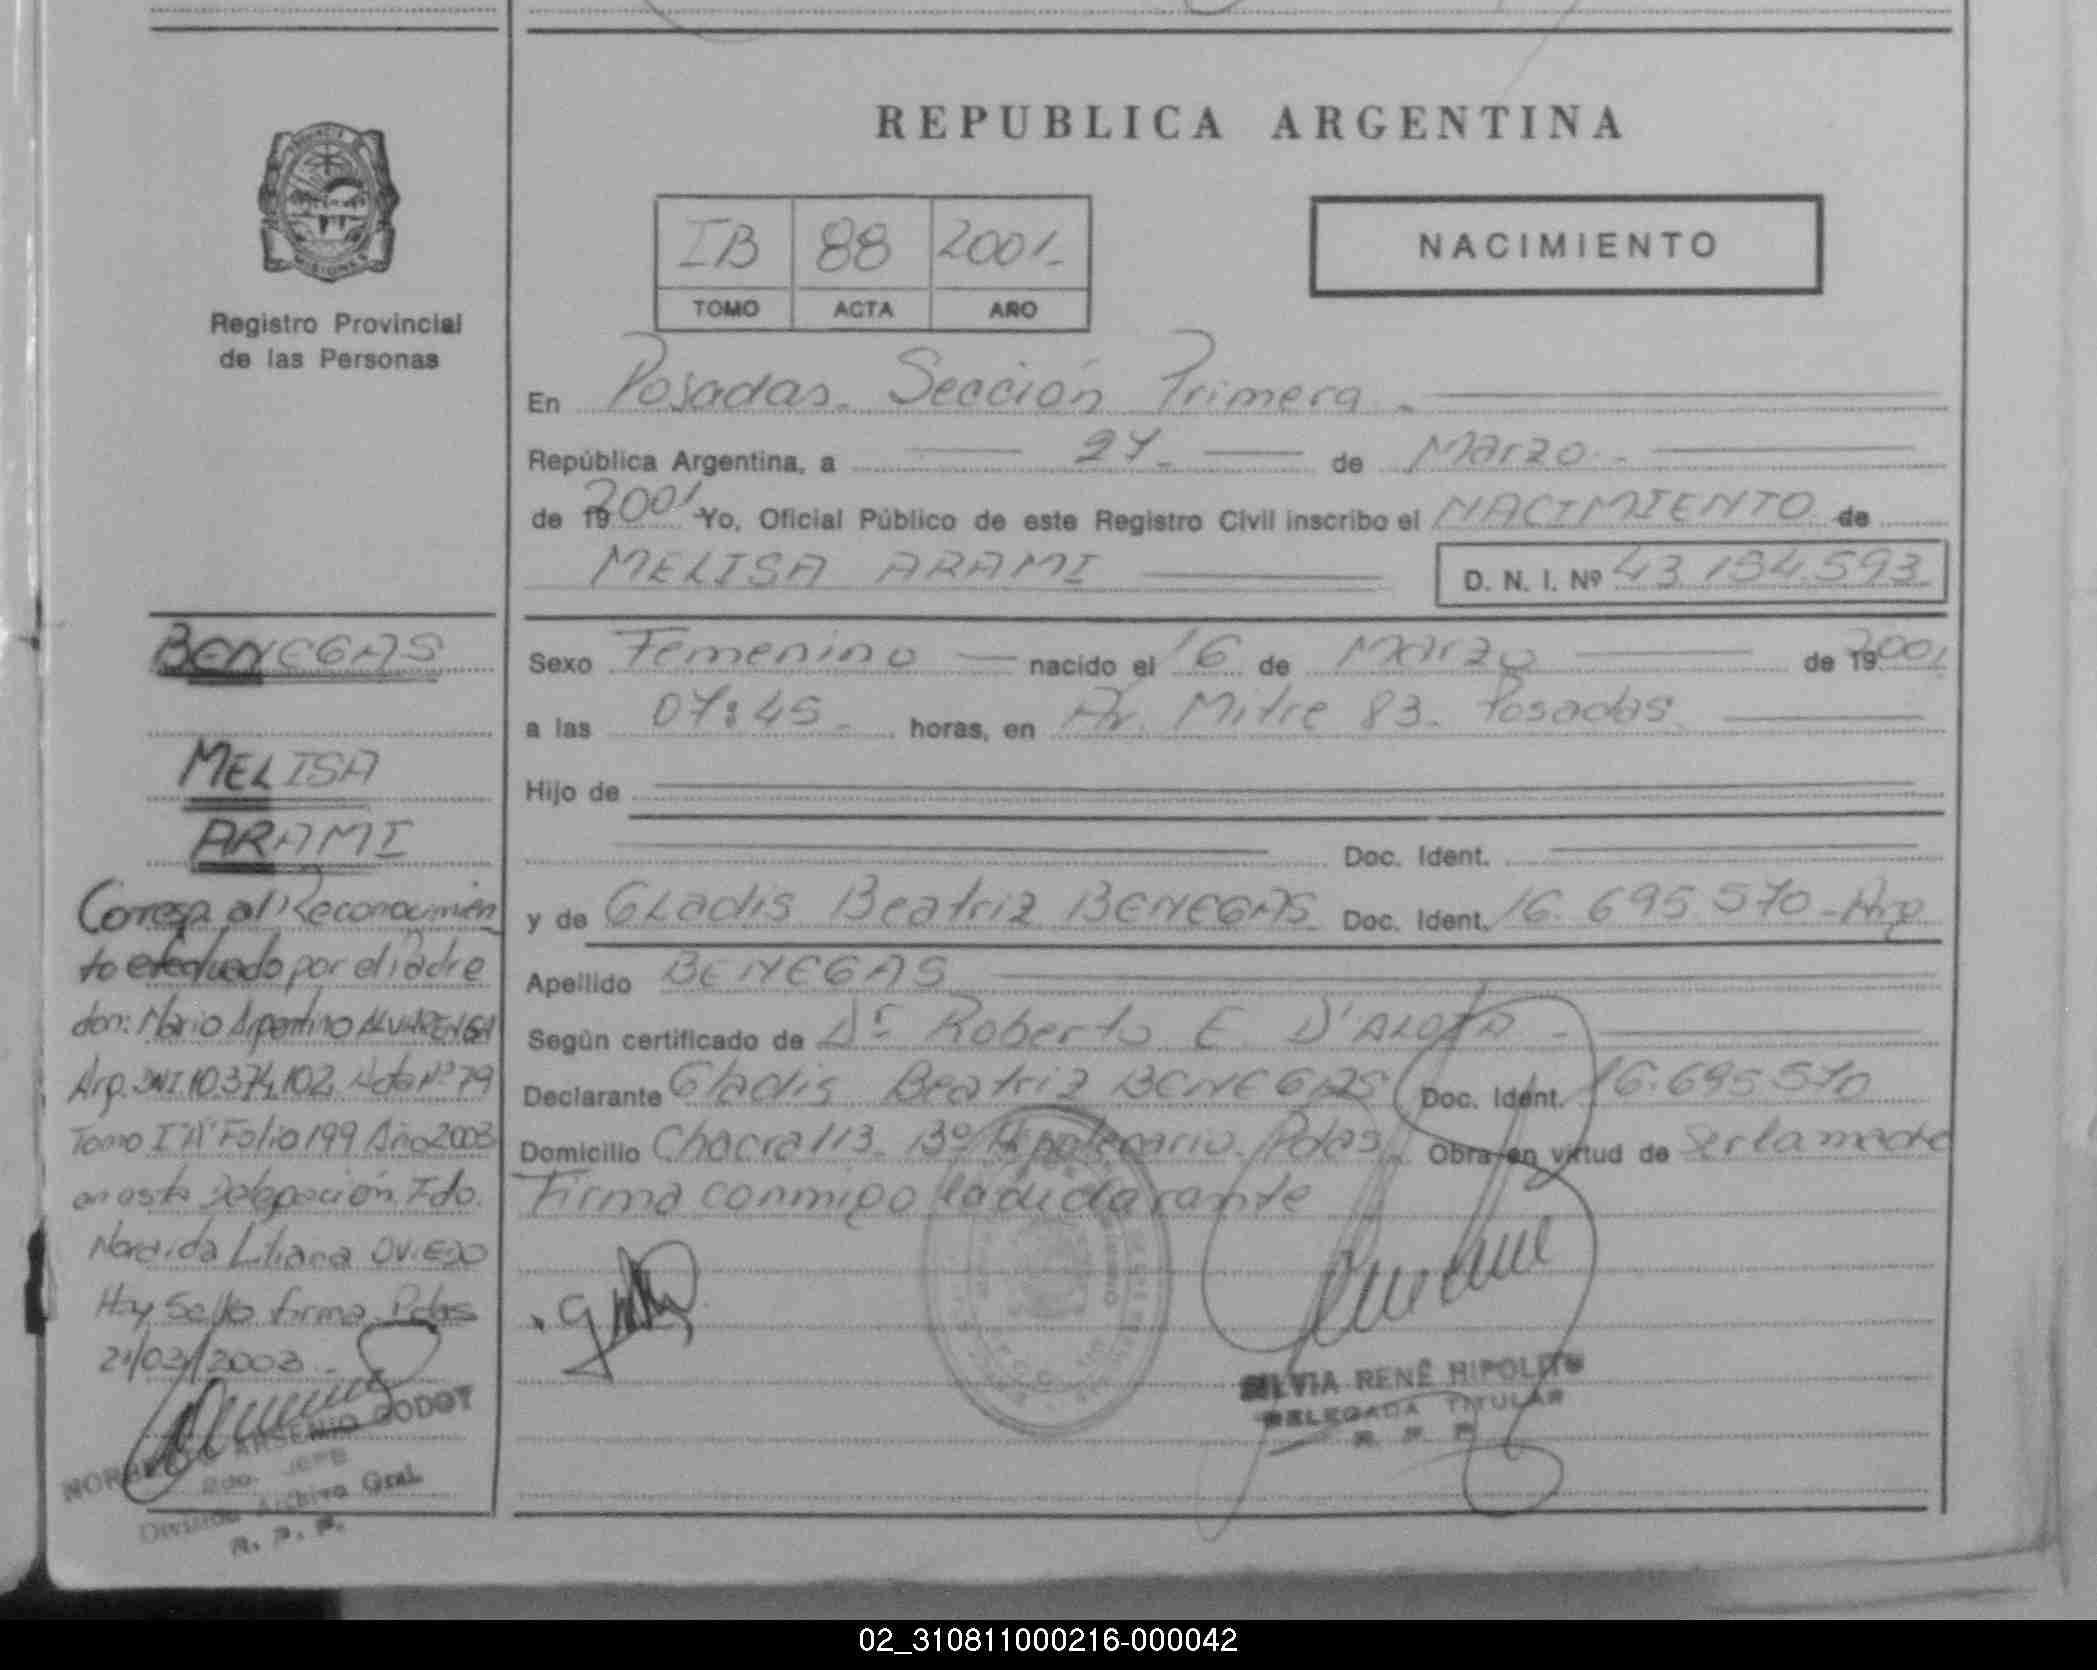 REPUBLICA ARGENTINA
PROVINCIA
MISIONES
Registro Provincial
de las Personas
IB 88 2001
TOMO ACTA AÑO
NACIMIENTO
En Posadas. Sección Primera.
República Argentina, a 27 de Marzo
de 19 2001 Yo, Oficial Público de este Registro Civil inscribo el NACIMIENTO de
MELISA ARAMI D. N. I. Nº 43.154.593
Sexo Femenino nacido el 16 de Marzo de 19 2001
a las 07:45 horas, en Av. Mitre 83. Posadas
Hijo de
Doc. Ident.
y de Gladis Beatriz BENEGAS Doc. Ident. 16.695.570-Arg
Apellido BENEGAS
Según certificado de Dr Roberto E.
Declarante Gladis Beatriz BENEGAS Doc. Ident. 16.695.570
Domicilio Chacra 113. Bº Hipotecario. Pdas. Obra en virtud de ser la madre
Firma conmigo la declarante
SILVIA RENÉ HIPOLITO
DELEGADA TITULAR
R. P. P.
BENEGAS
MELISA
ARAMI
Corresp al Reconocimien
to efectuado por el Padre
don: Mario Argentino ALVARENGA
Arg. DNI 10.374.102. Acta Nº 79
Tomo I "A" Folio 199 Año 2003
en esta Delegación. Fdo.
Liliana OVIEDO
Hay Sello firma. Pdas
21/03/2003.
ARSENIO GODOY
2do. JEFE
División Archivo Gral.
R. P. P.
02_310811000216-000042